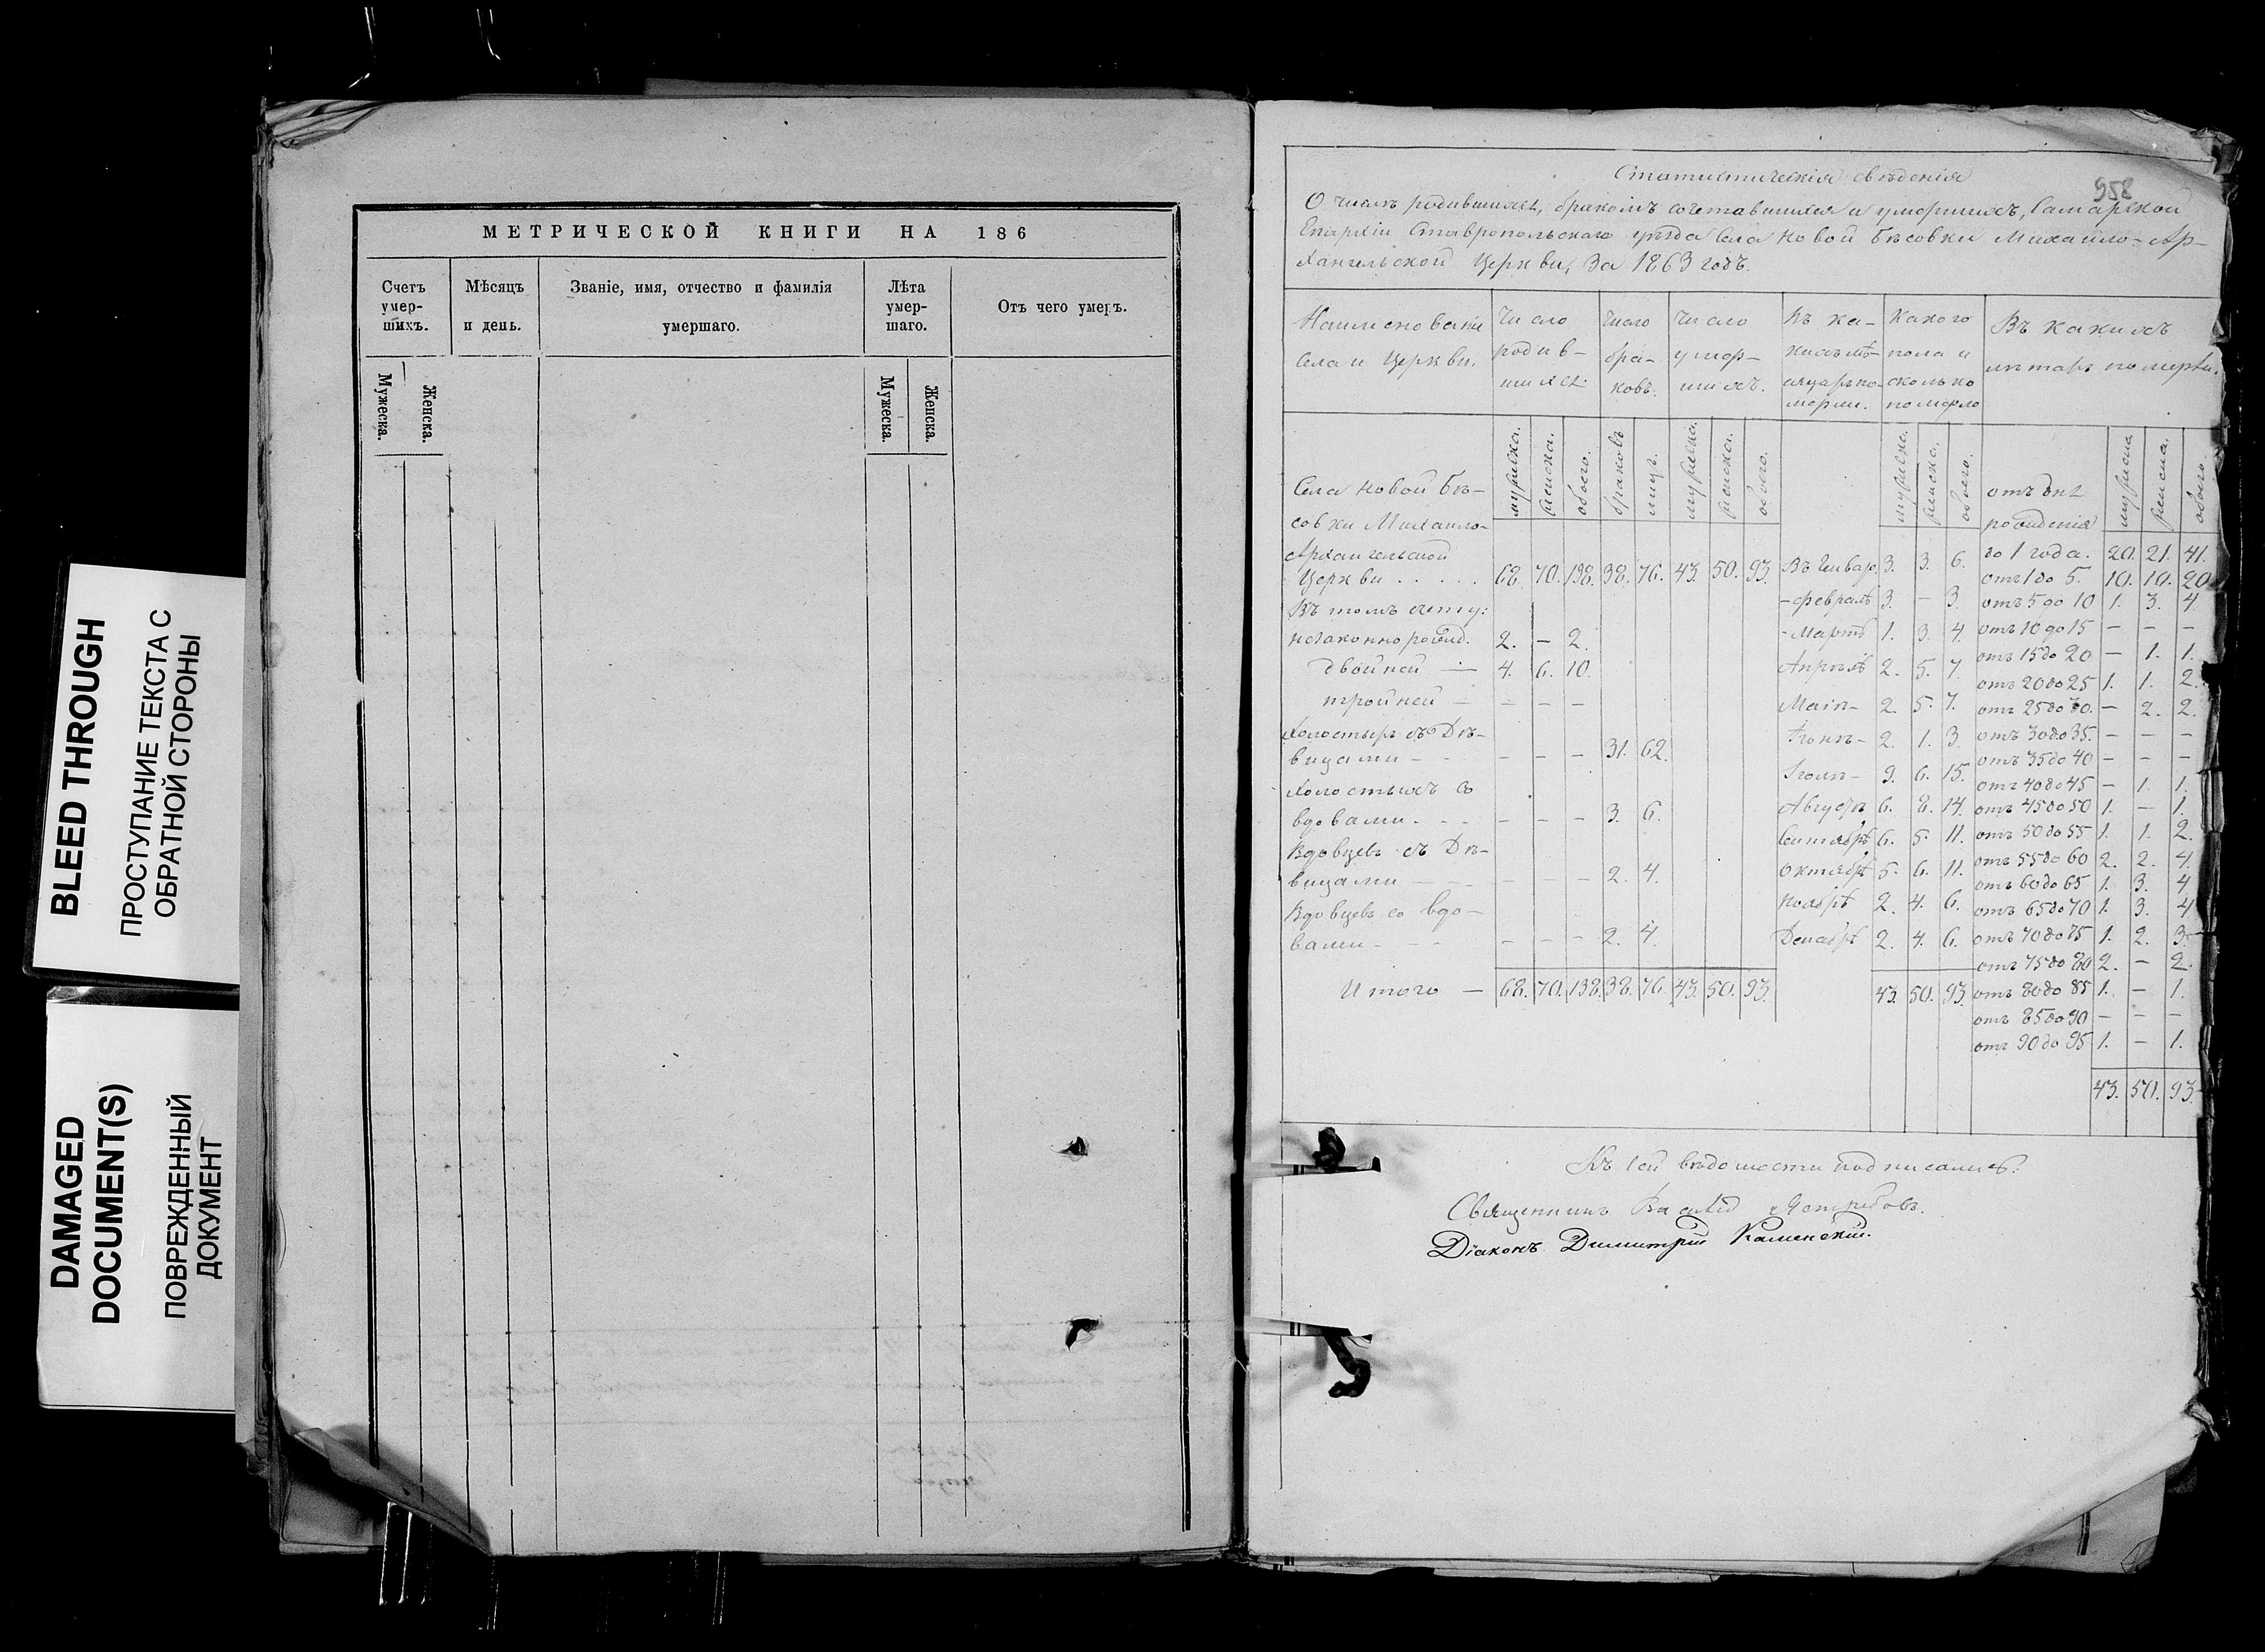 BLEED THROUGH
ПРОСТУПАНИЕ ТЕКСТА С
ОБРАТНОЙ СТОРОНЫ
DAMAGED
DOCUMENT(S)
ПОВРЕЖДЕННЫЙ
ДОКУМЕНТ
МЕТРИЧЕСКОЙ КНИГИ НА 186
Счетъ умер-шихъ.
Мѣсяцъ и день.
Званіе, имя, отчество и фамилія умершаго.
Лѣта умер-шаго.
Отъ чего умеръ.
Мужеска. Женска. Мужеска. Женска.
958
Статистическія свѣдѣнія
О числѣ родившихся, бракомъ сочетавшихся и умершихъ, Самарской
Епархіи Ставропольскаго уѣзда села Новой Бѣсовки Михаило-Ар-
хангельской Церкви, За 1863 годъ.
Наименованіе села и Церкви.
Число родив-шихся.
Число бра-ковъ.
Число умер-шихъ.
Въ ка-кихъ мѣ-сяцахъ по-мерли.
Какого пола и сколько померло
Въ какихъ лѣтахъ померли.
мужеска. женска. обоего. браковъ лицъ. мужеска. женска. обоего.
мужеска. женска. обоего.
мужеска женска. обоего.
Села Новой Бѣ-
совки Михаило-
Архангельской
Церкви . . . . . 68. 70. 138. 38. 76. 43. 50. 93.
Въ томъ счету:
незаконнорожд. 2. – 2.
двойней — 4. 6. 10.
тройней – – – –
Холостыхъ съ Дѣ-
вицами – – – – 31. 62.
Холостыхъ со
вдовами. – – – 3. 6.
Вдовцевъ съ Дѣ-
вицами — – – – 2. 4.
Вдовцевъ со вдо-
вами – – – – 2. 4.
Итого — 68. 70. 138. 38. 76. 43. 50. 93.
Въ Январ. 3. 3. 6.
- Февралѣ 3. – 3.
- Мартѣ 1. 3. 4.
Апрѣлѣ 2. 5. 7.
Маіѣ – 2. 5. 7.
Іюнѣ – 2. 1. 3.
Іюлѣ – 9. 6. 15.
Августѣ 6. 8. 14.
Сентябрѣ 6. 5. 11.
Октябрѣ 5. 6. 11.
Ноябрѣ 2. 4. 6.
Декабрѣ 2. 4. 6.
43. 50. 93.
отъ дня
рожденія
до 1 года. 20. 21. 41.
отъ 1 до 5. 10. 10. 20
отъ 5 до 10 1. 3. 4
отъ 10 до 15 – – –
отъ 15 до 20 – 1. 1.
отъ 20 до 25 1. 1. 2.
отъ 25 до 30. – 2. 2.
отъ 30 до 35. – – –
отъ 35 до 40 – – –
отъ 40 до 45 – 1. 1.
отъ 45 до 50 1. – 1.
отъ 50 до 55 1. 1. 2.
отъ 55 до 60 2. 2. 4.
отъ 60 до 65 1. 3. 4
отъ 65 до 70 1. 3. 4
отъ 70 до 75 1. 2. 3.
отъ 75 до 80 2. – 2.
отъ 80 до 85 1. – 1.
отъ 85 до 90 – – –
отъ 90 до 95 1. – 1.
43. 50. 93.
Къ сей вѣдомости подписались:
Священникъ Василій Ястребовъ.
Діаконъ Димитрій Каменскій.